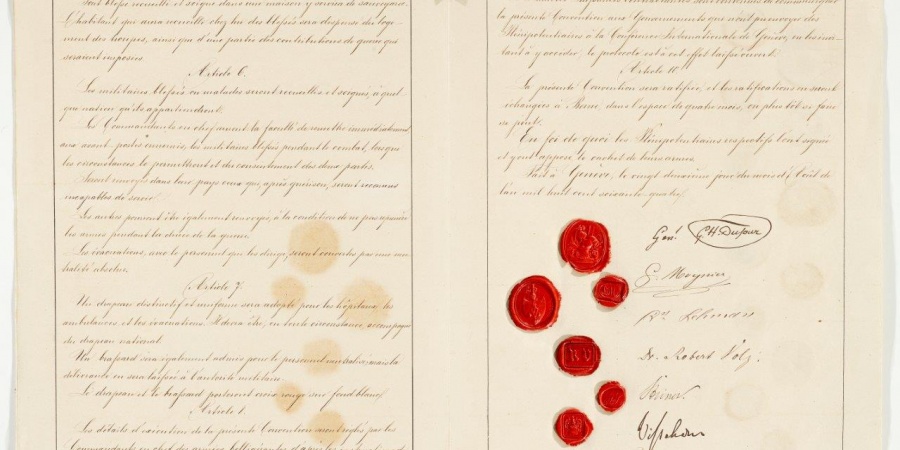 sont blessé recueilli et soigné dans une maison y servira de sauvegarde.
L'habitant qui aura recueilli chez lui des blessés sera dispensé du loge-
ment des troupes, ainsi que d'une partie des contributions de guerre qui
seraient imposées.
Article 6.
Les militaires blessés ou malades seront recueillis et soignés, à quel-
que nation qu'ils appartiendront.
Les Commandants en chef auront la faculté de remettre immédiatement
aux avant-postes ennemis, les militaires blessés pendant le combat, lorsque
les circonstances le permettront et du consentement des deux partis.
Seront renvoyés dans leur pays ceux qui, après guérison, seront reconnus
incapables de servir.
Les autres pourront être également renvoyés, à la condition de ne pas reprendre
les armes pendant la durée de la guerre.
Les évacuations, avec le personnel qui les dirige, seront couvertes par une neu-
tralité absolue.
Article 7.
Un drapeau distinctif et uniforme sera adopté pour les hôpitaux, les
ambulances et les évacuations. Il devra être, en toute circonstance, accompagné
du drapeau national.
Un brassard sera également admis pour le personnel neutralisé, mais la
délivrance en sera laissée à l'autorité militaire.
Le drapeau et le brassard porteront croix rouge sur fond blanc.
Article 8.
Les détails d'exécution de la présente Convention seront réglés par les
Commandants en chef des armées belligérantes, d'après les
la présente Convention aux Gouvernements qui n'ont pu envoyer des
Plénipotentiaires à la Conférence Internationale de Genève, en les invi-
tant à y accéder; le protocole est à cet effet laissé ouvert.
Article 10.
La présente Convention sera ratifiée, et les ratifications en seront
échangées à Berne, dans l'espace de quatre mois, ou plus tôt si faire
se peut.
En foi de quoi les Plénipotentiaires respectifs l'ont signée
et y ont apposé le cachet de leurs armes.
Fait à Genève, le vingt deuxième jour du mois d'Août de
l'an mil huit cent soixante quatre.
Génl. G H. Dufour
G. Moynier
Dr Lehmann
Dr. Robert Volz.
RV
Steiner.
Visschers